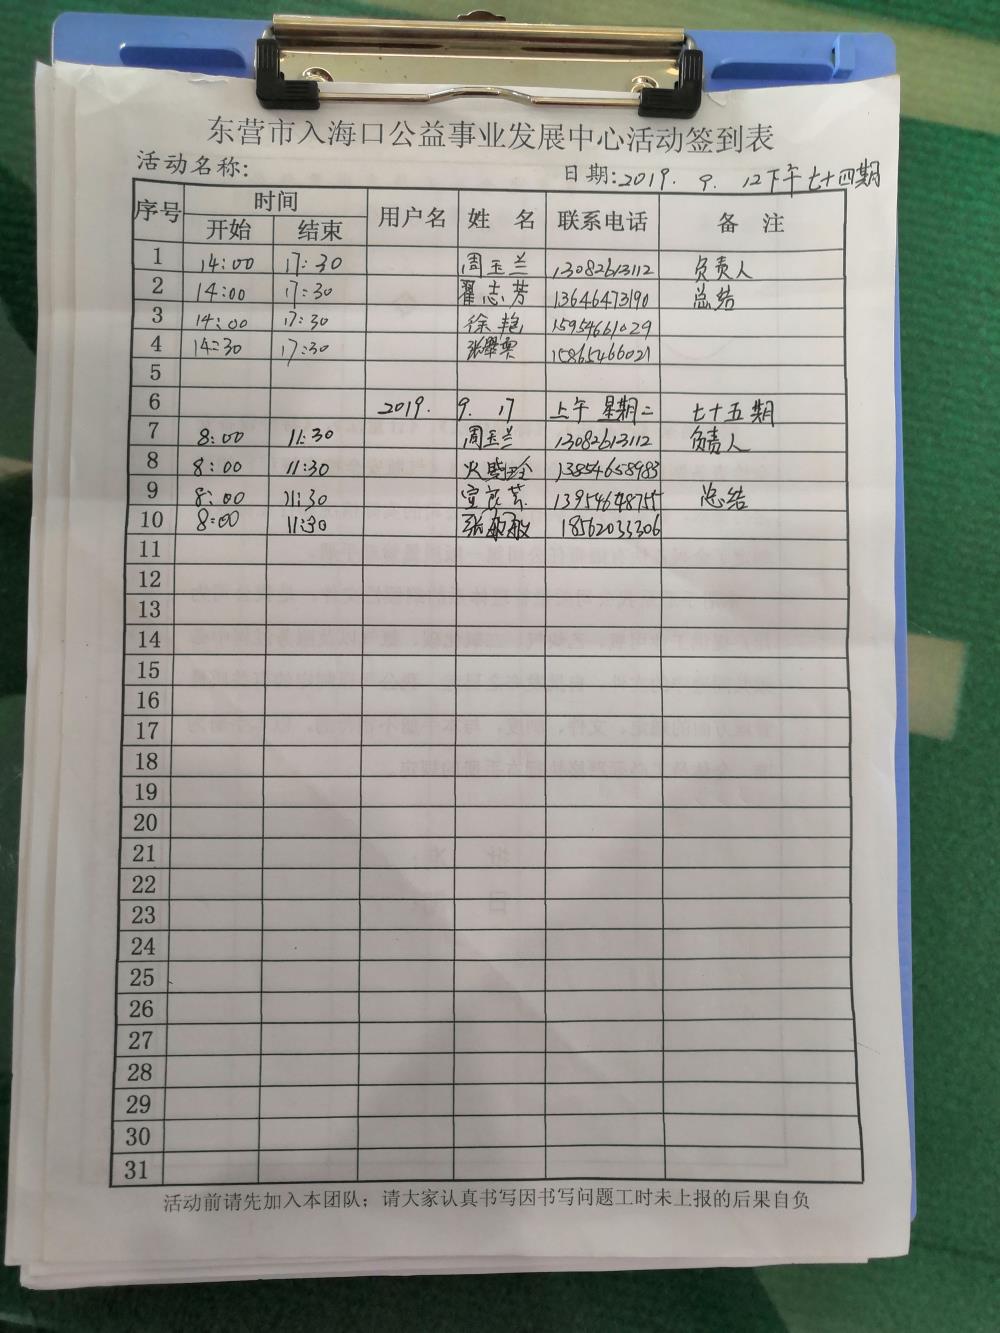 东营市入海口公益事业发展中心活动签到表
活动名称: 日期:2019. 9. 12下午七十四期
序号 时间 用户名 姓 名 联系电话 备 注
开始 结束
1 14:00 17:30 周玉兰 13082613112 负责人
2 14:00 17:30 翟志芳 13646473190 总结
3 14:00 17:30 徐艳 15954661029
4 14:30 17:30 张翠 15865466021
5
6 2019. 9. 17 上午 星期二 七十五期
7 8:00 11:30 周玉兰 13082613112 负责人
8 8:00 11:30 13854658983
9 8:00 11:30 13954648755 总结
10 8:00 11:30 张敏 18562033306
11
12
13
14
15
16
17
18
19
20
21
22
23
24
25
26
27
28
29
30
31
活动前请先加入本团队；请大家认真书写因书写问题工时未上报的后果自负